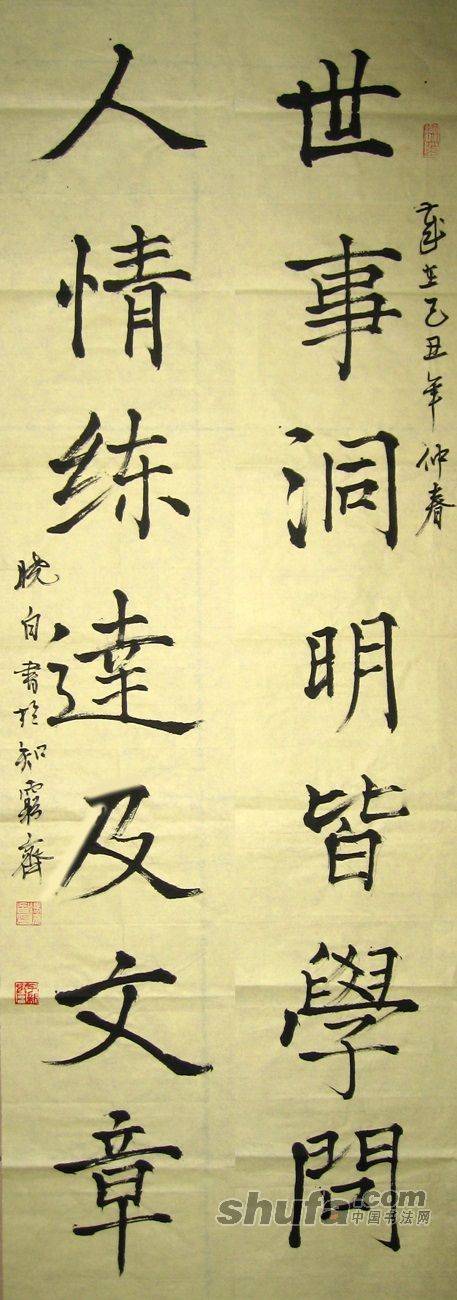 世事洞明皆學問
歲在己丑年仲春
人情练達及文章
晓白書於知霸齋
shufa.com
中国书法网